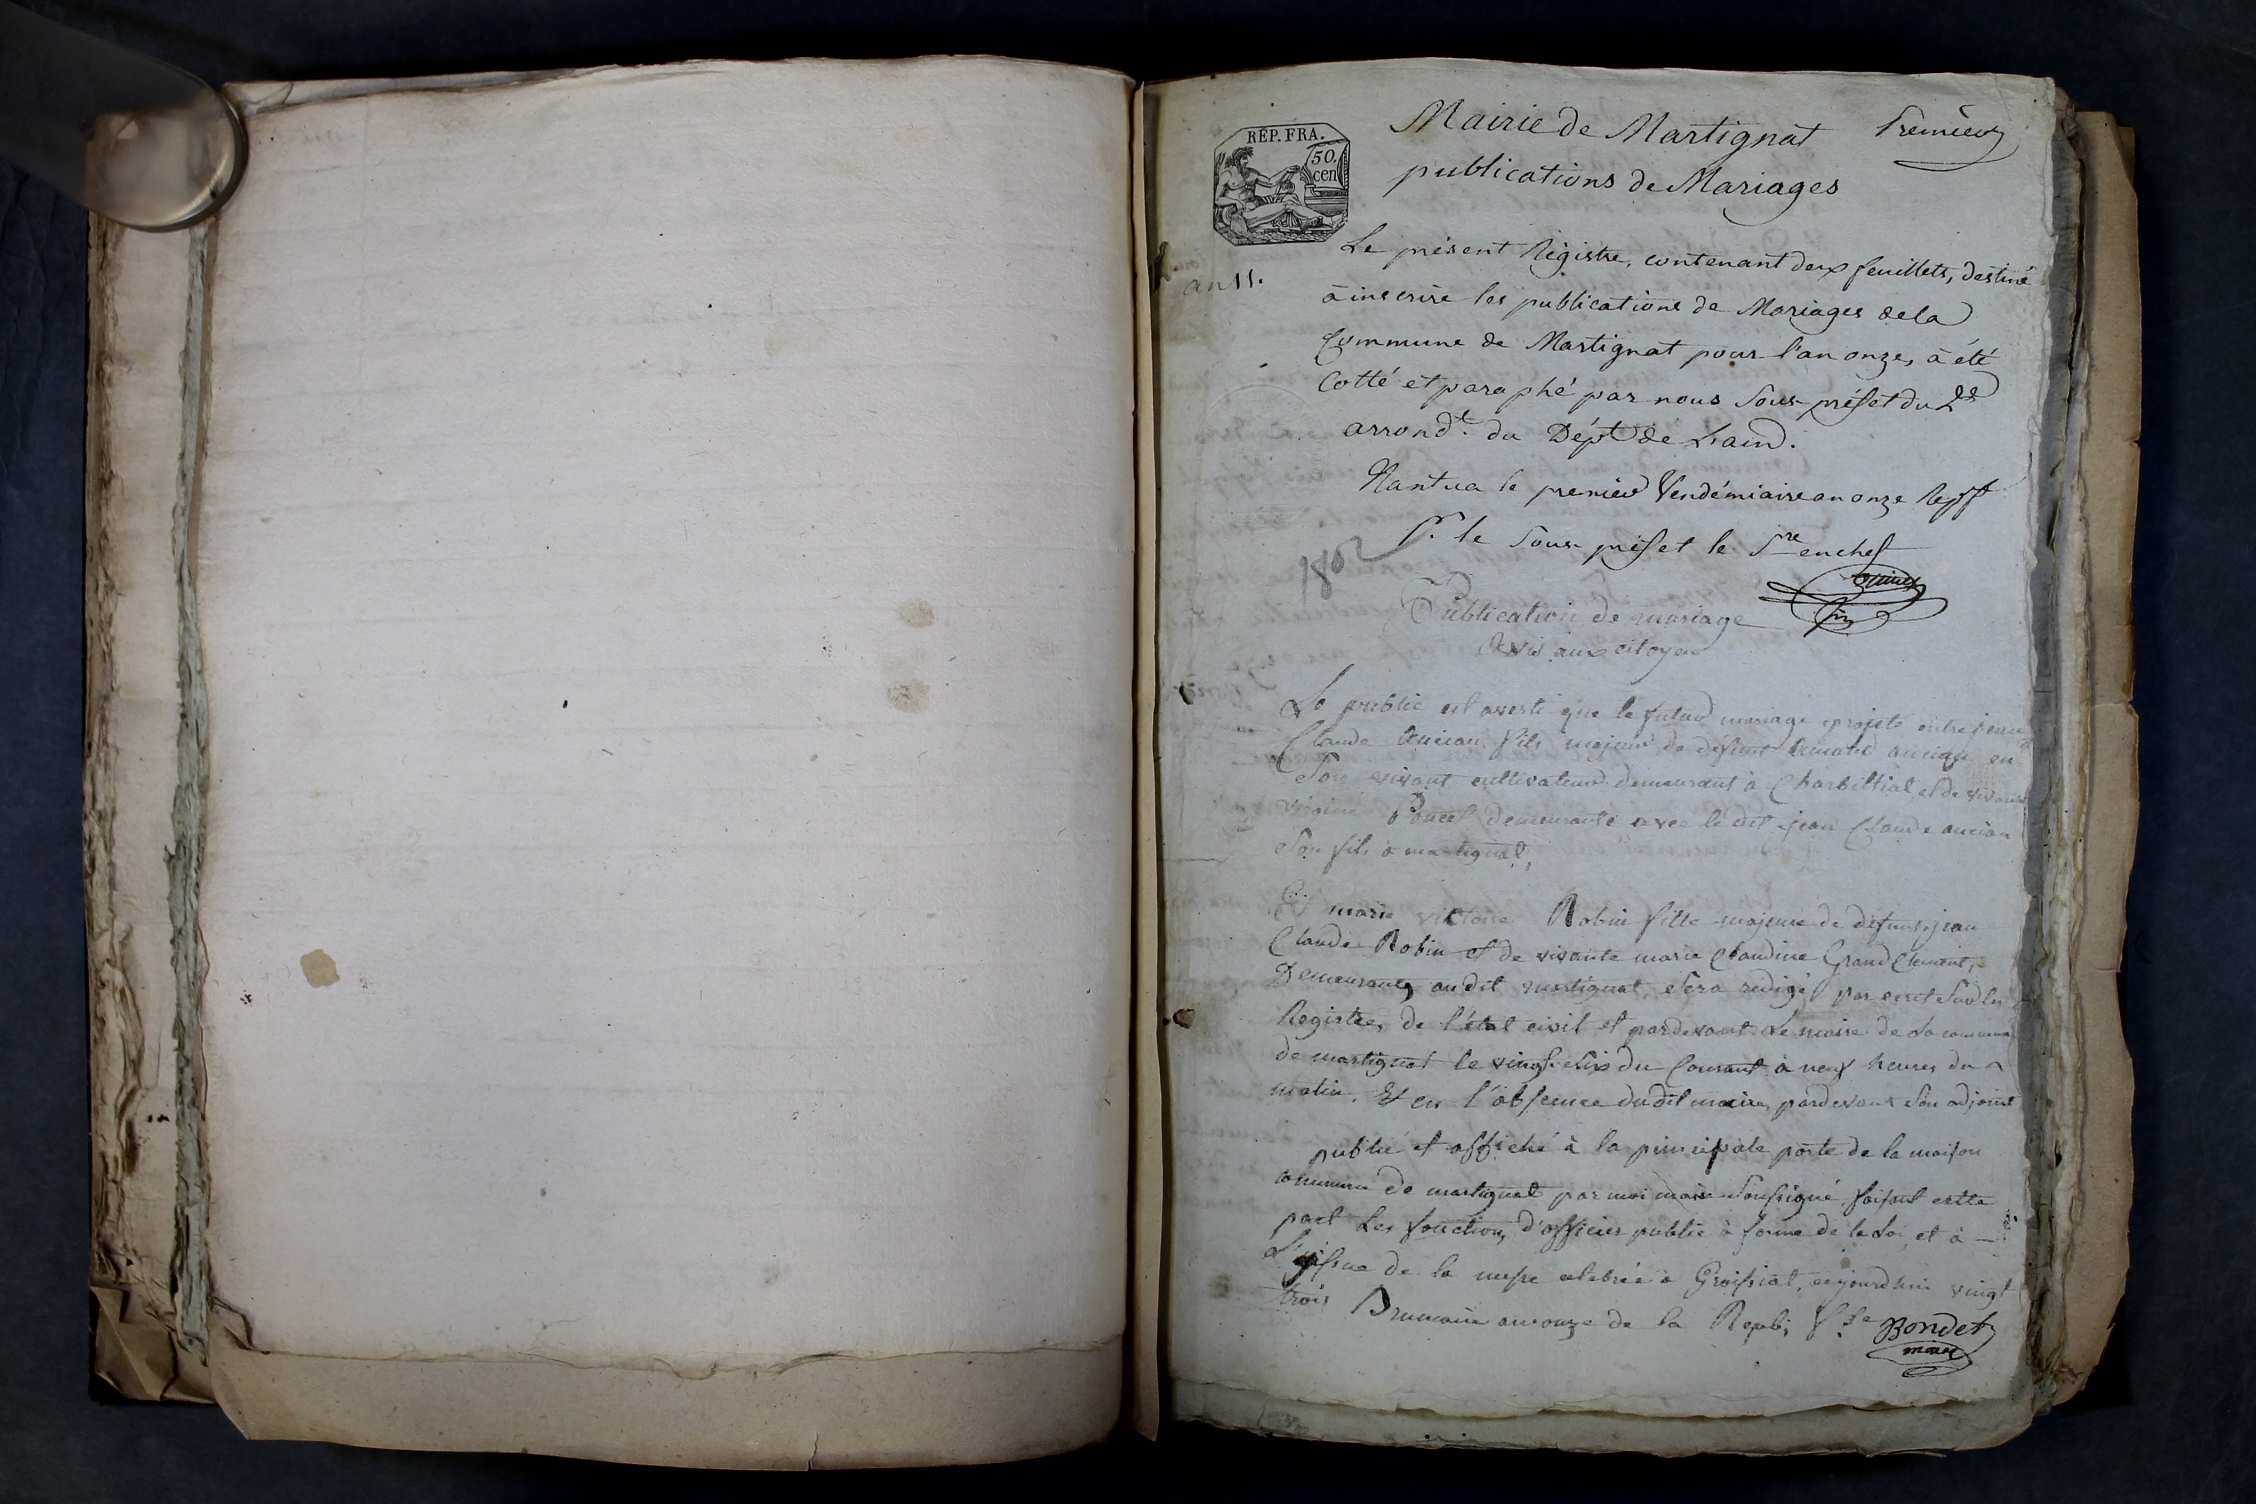 RÉP. FRA.
50.
cen
Mairie de Martignat
premier
publications de Mariages
an 11.
Le présent Régistre, contenant deux feuillets, destiné
à inscrire les publications de Mariages de la
Commune de Martignat pour l'an onze, à été
Cotté et paraphé par nous Sous-préfet du
arrond.t du Dépt de L'ain.
Nantua le premier Vendémiaire an onze
pr. le Sous-préfet le Sre en chef
1802
Publication de mariage
Avis aux citoyens
Le public est averti que le futur mariage projeté entre jean
Claude ancian fils majeur de défunt ancian en
Son vivant cultivateur demeurant à Charbillat et de vivante
Poncet demeurante avec le dit jean Claude ancian
Son fils à martignat,
Et marie victoire Robin fille majeure de défunt jean
Claude Robin et de vivante marie Claudine Grand Clement,
Demeurants au dit martignat, Sera redigé par ecrit Sur les
Registres de l'état civil et pardevant Le maire de La commune
de martignat le vingt Six du Courant à neuf heures du
matin. Et en l'absence dudit maire, pardevant Son adjoint
publié et affiché à la principale porte de la maison
commune de martignat par moi maire Soussigné, faisant cette
part Les fonctions d'officier public à forme de la Loi, et à
L'issue de la messe celebrée à Groissiat, cejourdhui vingt
trois Brumaire an onze de la Repub.
Bondet
maire